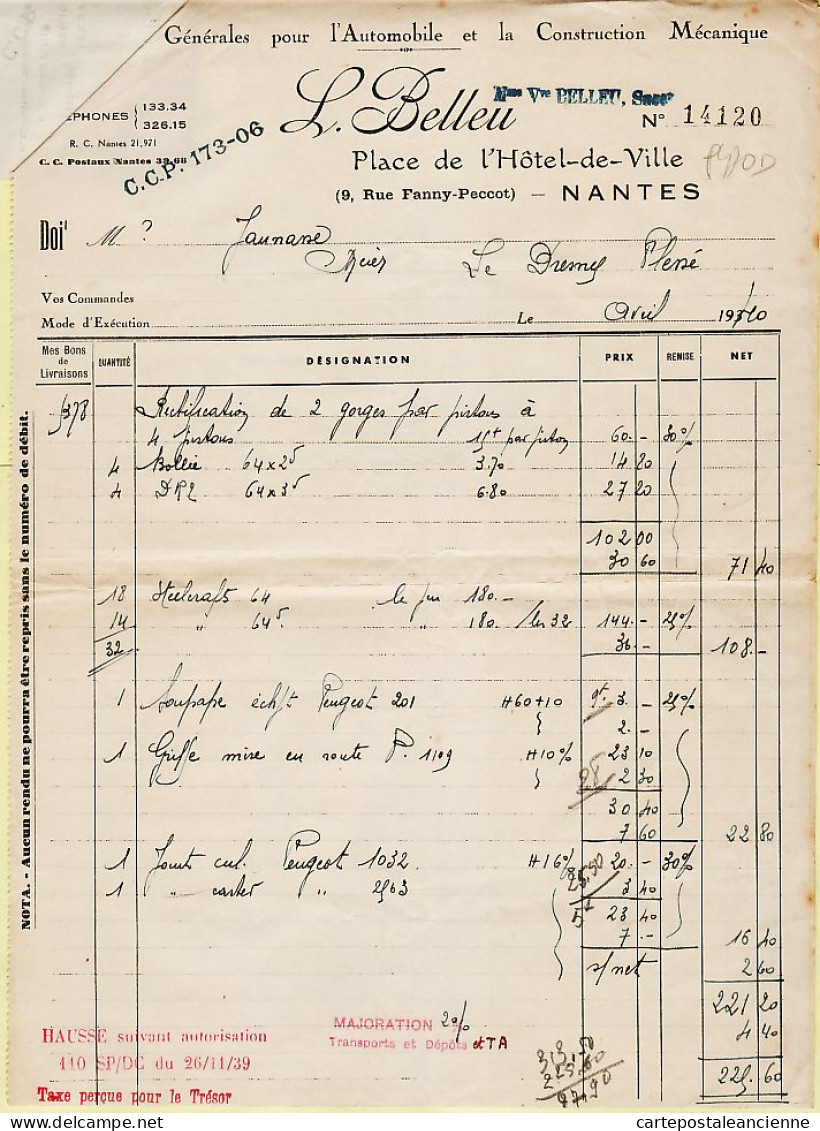 Générales pour l'Automobile et la Construction Mécanique
ÉPHONES { 133.34
326.15
R. C. Nantes 21,971
C. C. Postaux Nantes 38-68
C.C.P. 173-06
L. Belleu
Mme Vve BELLEU, Succr
N° 14120
Place de l'Hôtel-de-Ville
(9, Rue Fanny-Peccot) - NANTES
Doit M
Le Dresny Plessé
Vos Commandes
Mode d'Exécution Le Avril 1940
Mes Bons de Livraisons QUANTITÉ DÉSIGNATION PRIX REMISE NET
Rectification de 2 gorges par pistons à
4 pistons par piston 60.- 30%
4 64 x 2⁵ 3.70 14 80
4 64 x 3⁵ 6.80 27 20
102 00
30 60 71 40
18 64 le jeu 180.-
14 " 64⁵ " 180. les 32 144.- 25%
32 36.- 108.-
1 Soupape échpt Peugeot 201 H60+10 3.- 25%
2.-
1 Griffe mise en route P. 1109 H10% 23 10
2 30
30 40
7 60 22 80
1 Joint cul. Peugeot 1032 H16% 20.- 30%
1 " carter " 2563 3 40
23 40
7.- 16 40
s/ net 2 60
221 20
4 40
225 60
MAJORATION 2%
Transports et Dépôts et TA
HAUSSE suivant autorisation
110 SP/DC du 26/11/39
Taxe perçue pour le Trésor
NOTA. - Aucun rendu ne pourra être repris sans le numéro de débit.
cartepostaleancienne.com